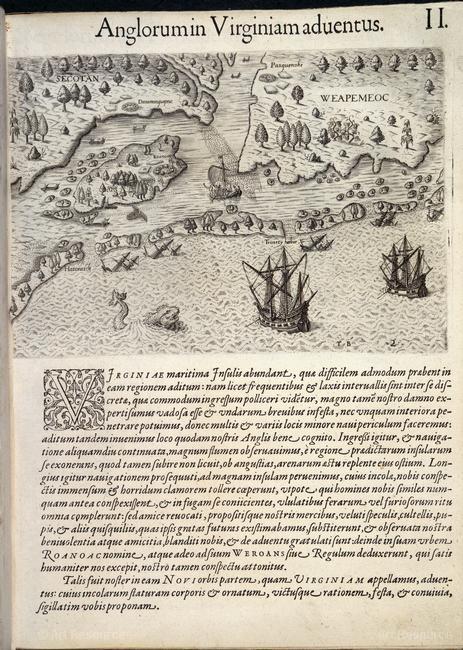 Anglorum in Virginiam aduentus. II.
SECOTAN
Pasquenoke
WEAPEMEOC
Dasamonquepeuc
Trinety harbor
Hatorasck
T B 2
VIRGINIAE maritima Insulis abundant, quæ difficilem admodum præbent in
eam regionem aditum: nam licet frequentibus & laxis interuallis sint inter se dis-
cretæ, quæ commodum ingressum polliceri videtur, magno tamē nostro damno ex-
pertisumus vadosa esse & vndarum breuibus infesta, nec vnquam interiora pe-
netrare potuimus, donec multis & variis locis minore naui periculum faceremus:
aditum tandem inuenimus loco quodam nostris Anglis bene cognito. Ingressi igitur, & nauiga-
tione aliquamdiu continuata, magnum flumen obseruauimus, è regione prædictarum insularum
se exonerans, quod tamen subire non licuit, ob angustias, arenarum æstu replente eius ostium. Lon-
gius igitur nauigationem prosequuti, ad magnam insulam peruenimus, cuius incolæ, nobis conspe-
ctis immensum & horridum clamorem tollere cœperunt, vtpote qui homines nobis similes nun-
quam antea conspexissent, & in fugam se conicientes, vlulatibus ferarum vel furiosorum ritu
omnia complerunt: sed amice reuocati, propositisque nostris mercibus, veluti speculis, cultellis, pu-
pis, & aliis quisquiliis, quas ipsis gratas futuras existimabamus, substiterunt, & obseruata nostra
beniuolentia atque amicitia, blanditi nobis, & de aduentu gratulati sunt: deinde in suam vrbem
ROANOAC nomine, atque adeo ad suum WEROANS siue Regulum deduxerunt, qui satis
humaniter nos excepit, nostro tamen conspectu attonitus.
Talis fuit noster in eam NOVI orbis partem, quam VIRGINIAM appellamus, aduen-
tus: cuius incolarum staturam corporis & ornatum, victusque rationem, festa, & conuiuia,
sigillatim vobis proponam.